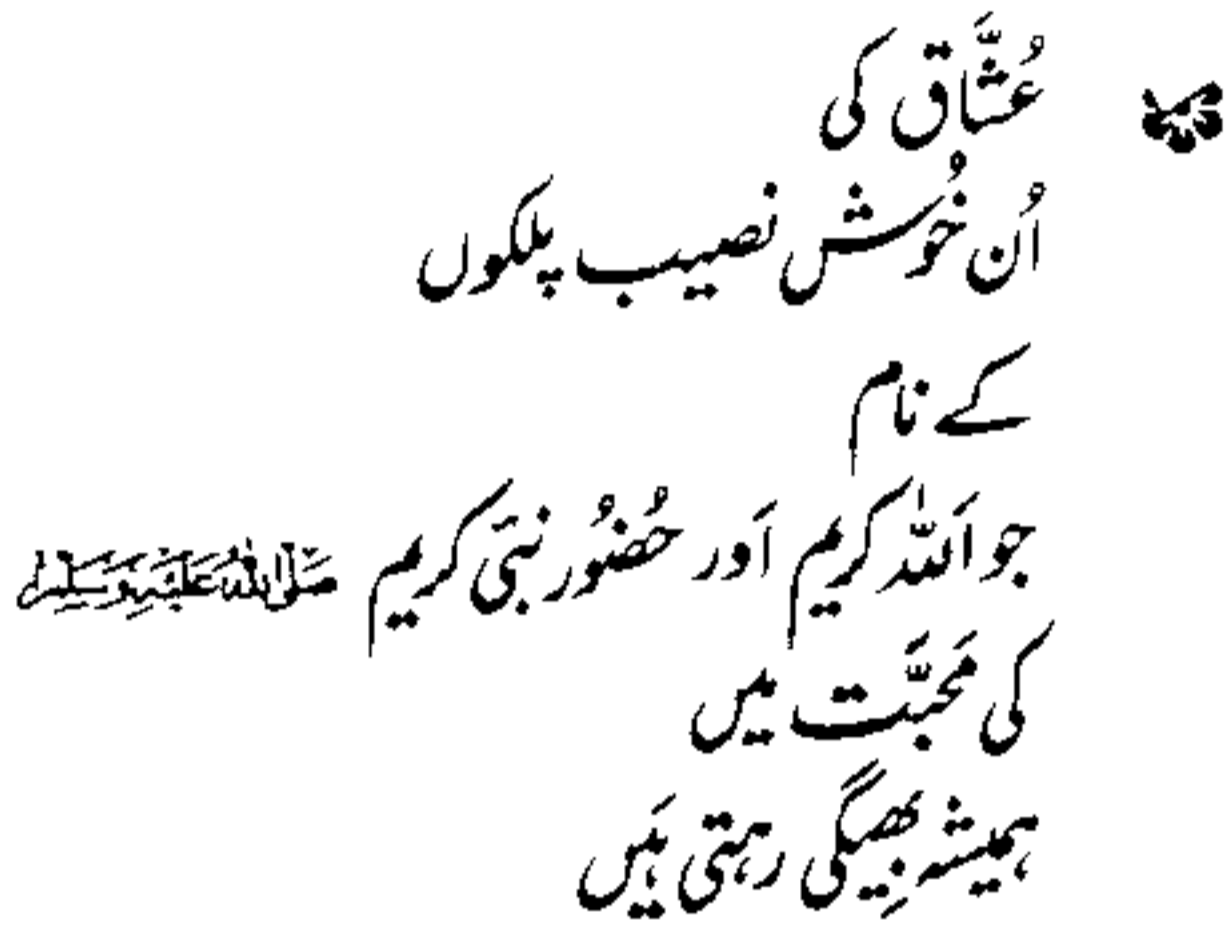 عُشَّاق کی
اُن خُوش نصیب پلکوں
کے نام
جو اَللّٰہ کریم اَور حُضُور نبیَ کریم صَلَّی اللّٰہُ عَلَیْہِ وَسَلَّم
کی مَحبَّت میں
ہمیشہ بِھیگی رہتی ہَیں